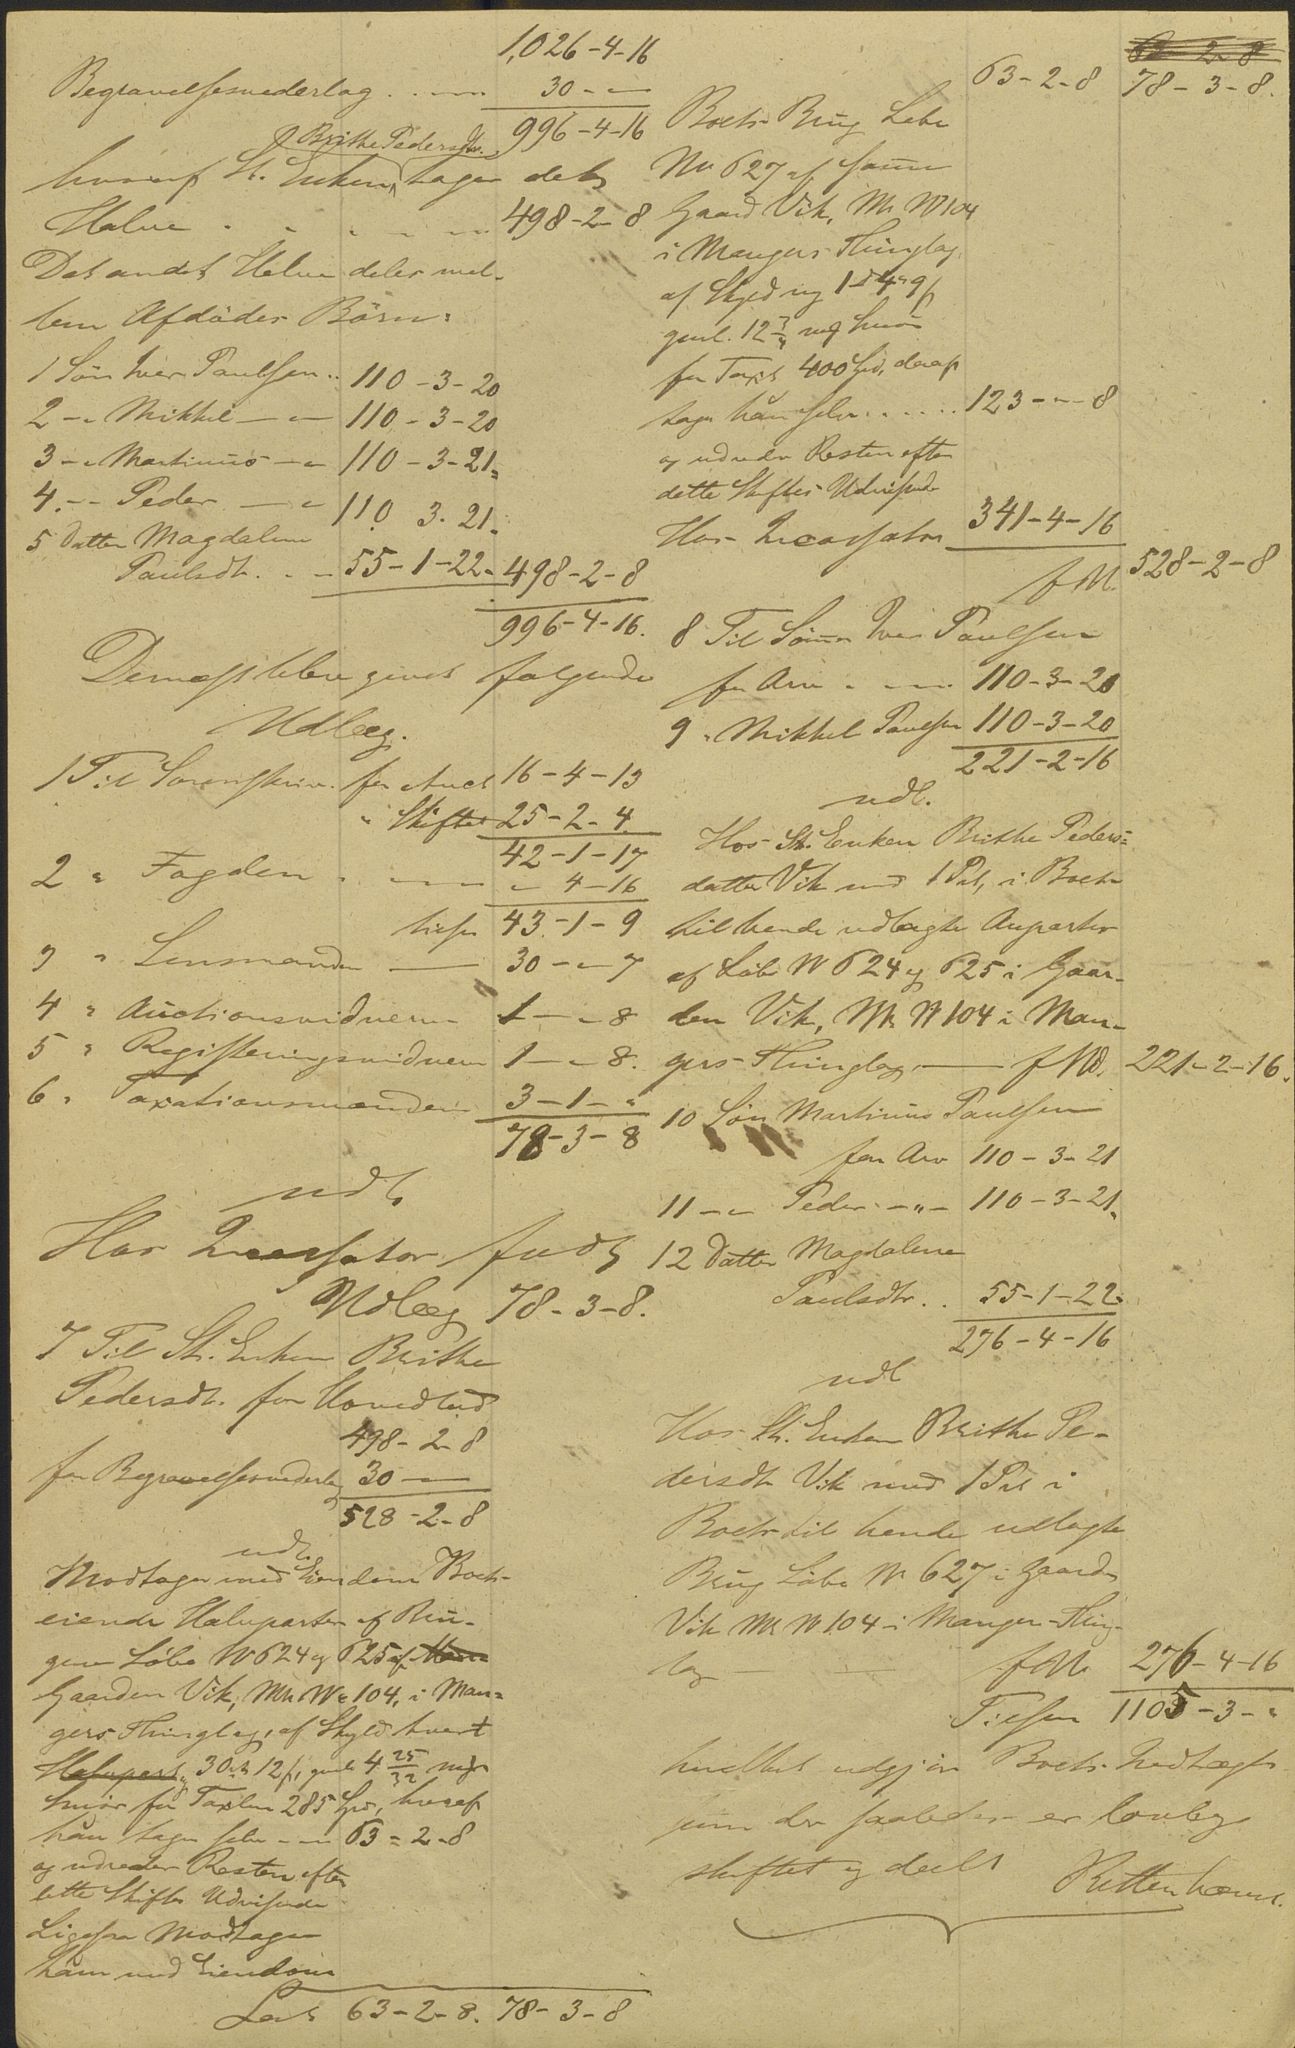 1,026-4-16
Begravelsesvederlag 30 - -
996-4-16
Brithe Pedersdtr.
hvoraf St. Enken tager det
Halve 498-2-8
Det andet Halve deles mel-
lem Afdödes Börn:
1 Sön Iver Paulsen 110-3-20
2 - Mikkel - 110-3-20
3 - Martinus - 110-3-21
4 - Peder - 110 3-21
5 Datter Magdalene
Paulsdtr. 55-1-22 498-2-8
996-4-16.
Dernæst blev givet følgende
Udlæg.
1 Til Sorenskriv. for Auct 16-4-13
" Skiftet 25-2-4
42-1-17
2 " Fogden - 4-16
tilsn 43-1-9
3 " Lensmanden 30 - - 7
4 " Auctionsvidnerne 1 - - 8
5 " Registeringsvidnerne 1 - - 8.
6 " Taxationsmændene 3-1- "
78-3-8
udl
Hos Incassator fuldt
Udlæg 78-3-8.
7 Til St. Enken Brithe
Pedersdt. for Hovedlod
498-2-8
for Begravelsesvederlag 30 -
528-2-8
udl.
Modtager med Eiendom Boets
eiende Halvparten af Bru-
gene Löbe No 624 og 625 af
Gaarden Vik, Mk No 104, i Man-
gers Thinglag, af Skyld hvert
Halvpart 30 12 s, gml. 4 25/32 mrk
smör for Taxten 285 Spd, hvoraf
hun tager selv 63-2-8
og udreder Resten efter
dette Skiftes Udvisende
Ligesaa Modtager
hun med Eiendom
Lat 63-2-8. 78-3-8
62 2-8
63-2-8 78-3-8.
Boets Brug Löbe
No 627 af samme
Gaard Vik, Mk No 104
i Mangers Thinglag
af Skyld ny 1 4 9 s
gml. 12 3/4 mrk smör
for Taxt 400 Spd, deraf
tager hun selv 123 - - 8
og udreder Resten efter
dette Skiftes Udvisende
Hos Incassator 341-4-16
f Ud. 528-2-8
8 Til Sönnen Iver Paulsen
for Arv 110-3-20
9 " Mikkel Paulsen 110-3-20
221-2-16
udl.
Hos St. Enken Brithe Peders-
datter Vik med 1 Pr, i Boets
til hende udlagte Anparter
af Löbe No 624 og 625 i Gaar-
den Vik, Mk No 104 i Man-
gers Thinglag f Ud. 221-2-16.
10 Sön Martinus Paulsen
for Arv 110-3-21
11 - Peder - " - 110-3-21
12 Datter Magdalene
Paulsdtr. 55-1-22
276-4-16
udl
Hos St. Enken Brithe Pe-
dersdtr Vik med 1 Pr i
Boets til hende udlagte
Brug Löbe No 627 i Gaarden
Vik Mk No 104 i Manger Thing-
lag f Ud. 276-4-16
Tilsn 1105-3- "
hvilket udgjör Boets Indtægt
som der saaledes er lovlig
skiftet og deelt
Rettenhævet.